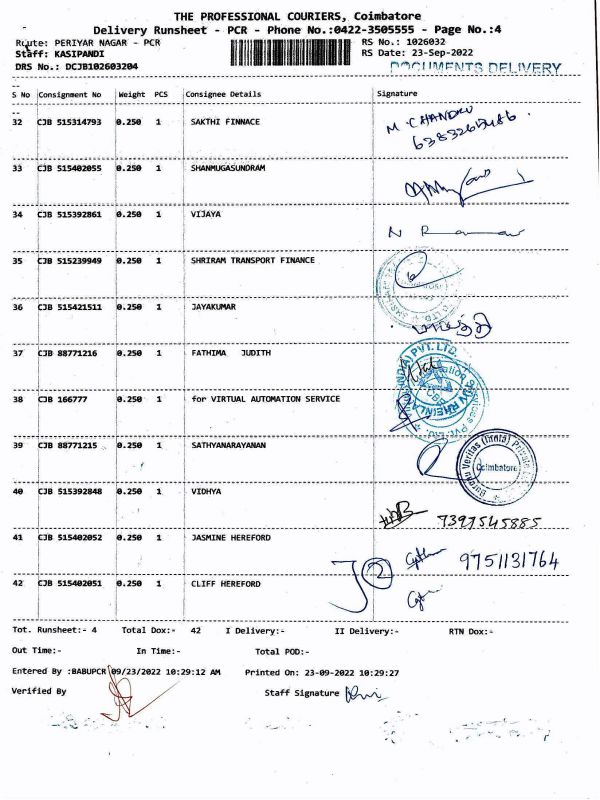 THE PROFESSIONAL COURIERS, Coimbatore
Delivery Runsheet - PCR - Phone No.:0422-3505555 - Page No.:4
Route: PERIYAR NAGAR - PCR RS No.: 1026032
Staff: KASIPANDI RS Date: 23-Sep-2022
DRS No.: DCJB102603204 DOCUMENTS DELIVERY
S No Consignment No Weight PCS Consignee Details Signature
32 CJB 515314793 0.250 1 SAKTHI FINNACE M. CHANDRU
33 CJB 515402055 0.250 1 SHANMUGASUNDRAM
34 CJB 515392861 0.250 1 VIJAYA
35 CJB 515239949 0.250 1 SHRIRAM TRANSPORT FINANCE
36 CJB 515421511 0.250 1 JAYAKUMAR
37 CJB 88771216 0.250 1 FATHIMA JUDITH
38 CJB 166777 0.250 1 for VIRTUAL AUTOMATION SERVICE
39 CJB 88771215 0.250 1 SATHYANARAYANAN
Bureau Veritas (India) Private
Coimbatore
40 CJB 515392848 0.250 1 VIDHYA
7397545885
41 CJB 515402052 0.250 1 JASMINE HEREFORD
9751131764
42 CJB 515402051 0.250 1 CLIFF HEREFORD
Tot. Runsheet:- 4 Total Dox:- 42 I Delivery:- II Delivery:- RTN Dox:-
Out Time:- In Time:- Total POD:-
Entered By :BABUPCR 09/23/2022 10:29:12 AM Printed On: 23-09-2022 10:29:27
Verified By Staff Signature